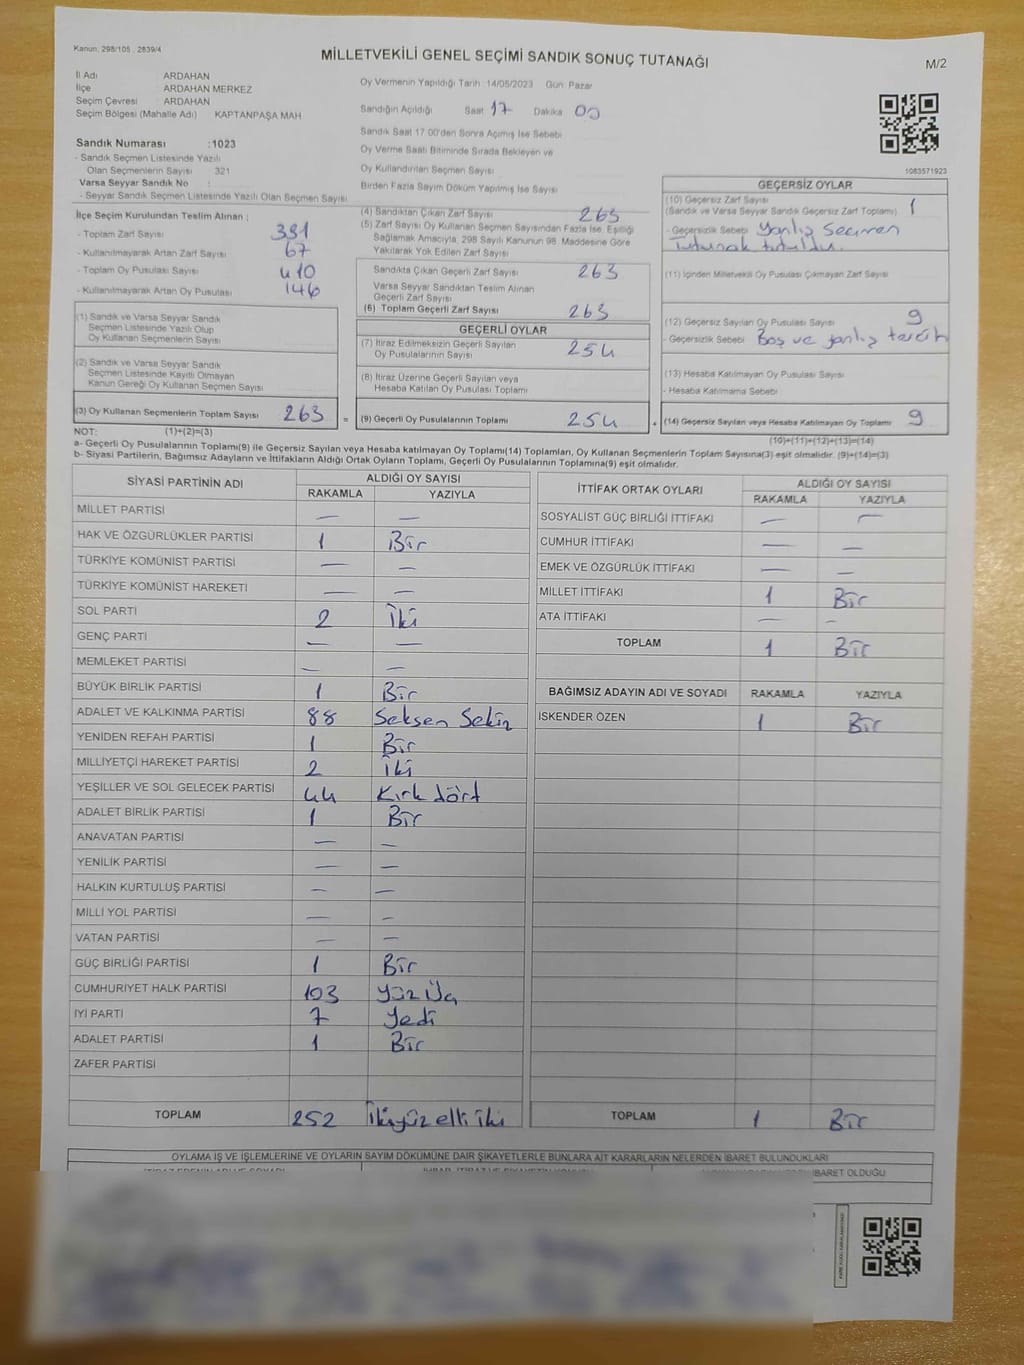 Kanun: 298/105 , 2839/4
MİLLETVEKİLİ GENEL SEÇİMİ SANDIK SONUÇ TUTANAĞI
M/2
İl Adı ARDAHAN
İlçe ARDAHAN MERKEZ
Seçim Çevresi ARDAHAN
Seçim Bölgesi (Mahalle Adı) KAPTANPAŞA MAH
Oy Vermenin Yapıldığı Tarih : 14/05/2023 Gün: Pazar
Sandığın Açıldığı Saat 17 Dakika 00
Sandık Saat 17.00'den Sonra Açılmış İse Sebebi
Oy Verme Saati Bitiminde Sırada Bekleyen ve
Oy Kullandırılan Seçmen Sayısı
Birden Fazla Sayım Döküm Yapılmış İse Sayısı
1083571923
Sandık Numarası :1023
- Sandık Seçmen Listesinde Yazılı
Olan Seçmenlerin Sayısı 321
Varsa Seyyar Sandık No :
- Seyyar Sandık Seçmen Listesinde Yazılı Olan Seçmen Sayısı
İlçe Seçim Kurulundan Teslim Alınan ;
- Toplam Zarf Sayısı 331
- Kullanılmayarak Artan Zarf Sayısı 67
- Toplam Oy Pusulası Sayısı 410
- Kullanılmayarak Artan Oy Pusulası 146
(1) Sandık ve Varsa Seyyar Sandık
Seçmen Listesinde Yazılı Olup
Oy Kullanan Seçmenlerin Sayısı
(2) Sandık ve Varsa Seyyar Sandık
Seçmen Listesinde Kayıtlı Olmayan
Kanun Gereği Oy Kullanan Seçmen Sayısı
(3) Oy Kullanan Seçmenlerin Toplam Sayısı 263 =
(4) Sandıktan Çıkan Zarf Sayısı 263
(5) Zarf Sayısı Oy Kullanan Seçmen Sayısından Fazla İse, Eşitliği
Sağlamak Amacıyla, 298 Sayılı Kanunun 98. Maddesine Göre
Yakılarak Yok Edilen Zarf Sayısı
Sandıkta Çıkan Geçerli Zarf Sayısı 263
Varsa Seyyar Sandıktan Teslim Alınan
Geçerli Zarf Sayısı
(6) Toplam Geçerli Zarf Sayısı 263
GEÇERLİ OYLAR
(7) İtiraz Edilmeksizin Geçerli Sayılan
Oy Pusulalarının Sayısı 254
(8) İtiraz Üzerine Geçerli Sayılan veya
Hesaba Katılan Oy Pusulası Toplamı
(9) Geçerli Oy Pusulalarının Toplamı 254 +
GEÇERSİZ OYLAR
(10) Geçersiz Zarf Sayısı 1
(Sandık ve Varsa Seyyar Sandık Geçersiz Zarf Toplamı)
- Geçersizlik Sebebi Yanlış Seçmen
Tutanak tutuldu.
(11) İçinden Milletvekili Oy Pusulası Çıkmayan Zarf Sayısı
(12) Geçersiz Sayılan Oy Pusulası Sayısı 9
- Geçersizlik Sebebi Boş ve yanlış tercih
(13) Hesaba Katılmayan Oy Pusulası Sayısı
- Hesaba Katılmama Sebebi
(14) Geçersiz Sayılan veya Hesaba Katılmayan Oy Toplamı 9
NOT: (1)+(2)=(3)
(10)+(11)+(12)+(13)=(14)
a- Geçerli Oy Pusulalarının Toplamı(9) ile Geçersiz Sayılan veya Hesaba katılmayan Oy Toplamı(14) Toplamları, Oy Kullanan Seçmenlerin Toplam Sayısına(3) eşit olmalıdır. (9)+(14)=(3)
b- Siyasi Partilerin, Bağımsız Adayların ve İttifakların Aldığı Ortak Oyların Toplamı, Geçerli Oy Pusulalarının Toplamına(9) eşit olmalıdır.
SİYASİ PARTİNİN ADI ALDIĞI OY SAYISI
RAKAMLA YAZIYLA
MİLLET PARTİSİ — —
HAK VE ÖZGÜRLÜKLER PARTİSİ 1 Bir
TÜRKİYE KOMÜNİST PARTİSİ — —
TÜRKİYE KOMÜNİST HAREKETİ — —
SOL PARTİ 2 İki
GENÇ PARTİ — —
MEMLEKET PARTİSİ — —
BÜYÜK BİRLİK PARTİSİ 1 Bir
ADALET VE KALKINMA PARTİSİ 88 Seksen Sekiz
YENİDEN REFAH PARTİSİ 1 Bir
MİLLİYETÇİ HAREKET PARTİSİ 2 İki
YEŞİLLER VE SOL GELECEK PARTİSİ 44 Kırk dört
ADALET BİRLİK PARTİSİ 1 Bir
ANAVATAN PARTİSİ — —
YENİLİK PARTİSİ — —
HALKIN KURTULUŞ PARTİSİ — —
MİLLİ YOL PARTİSİ — —
VATAN PARTİSİ — —
GÜÇ BİRLİĞİ PARTİSİ 1 Bir
CUMHURİYET HALK PARTİSİ 103 Yüz Üç
İYİ PARTİ 7 Yedi
ADALET PARTİSİ 1 Bir
ZAFER PARTİSİ
TOPLAM 252 İkiyüz elli iki
İTTİFAK ORTAK OYLARI ALDIĞI OY SAYISI
RAKAMLA YAZIYLA
SOSYALİST GÜÇ BİRLİĞİ İTTİFAKI — —
CUMHUR İTTİFAKI — —
EMEK VE ÖZGÜRLÜK İTTİFAKI — —
MİLLET İTTİFAKI 1 Bir
ATA İTTİFAKI — —
TOPLAM 1 Bir
BAĞIMSIZ ADAYIN ADI VE SOYADI RAKAMLA YAZIYLA
İSKENDER ÖZEN 1 Bir
TOPLAM 1 Bir
OYLAMA İŞ VE İŞLEMLERİNE VE OYLARIN SAYIM DÖKÜMÜNE DAİR ŞİKAYETLERLE BUNLARA AİT KARARLARIN NELERDEN İBARET BULUNDUKLARI
İBARET OLDUĞU